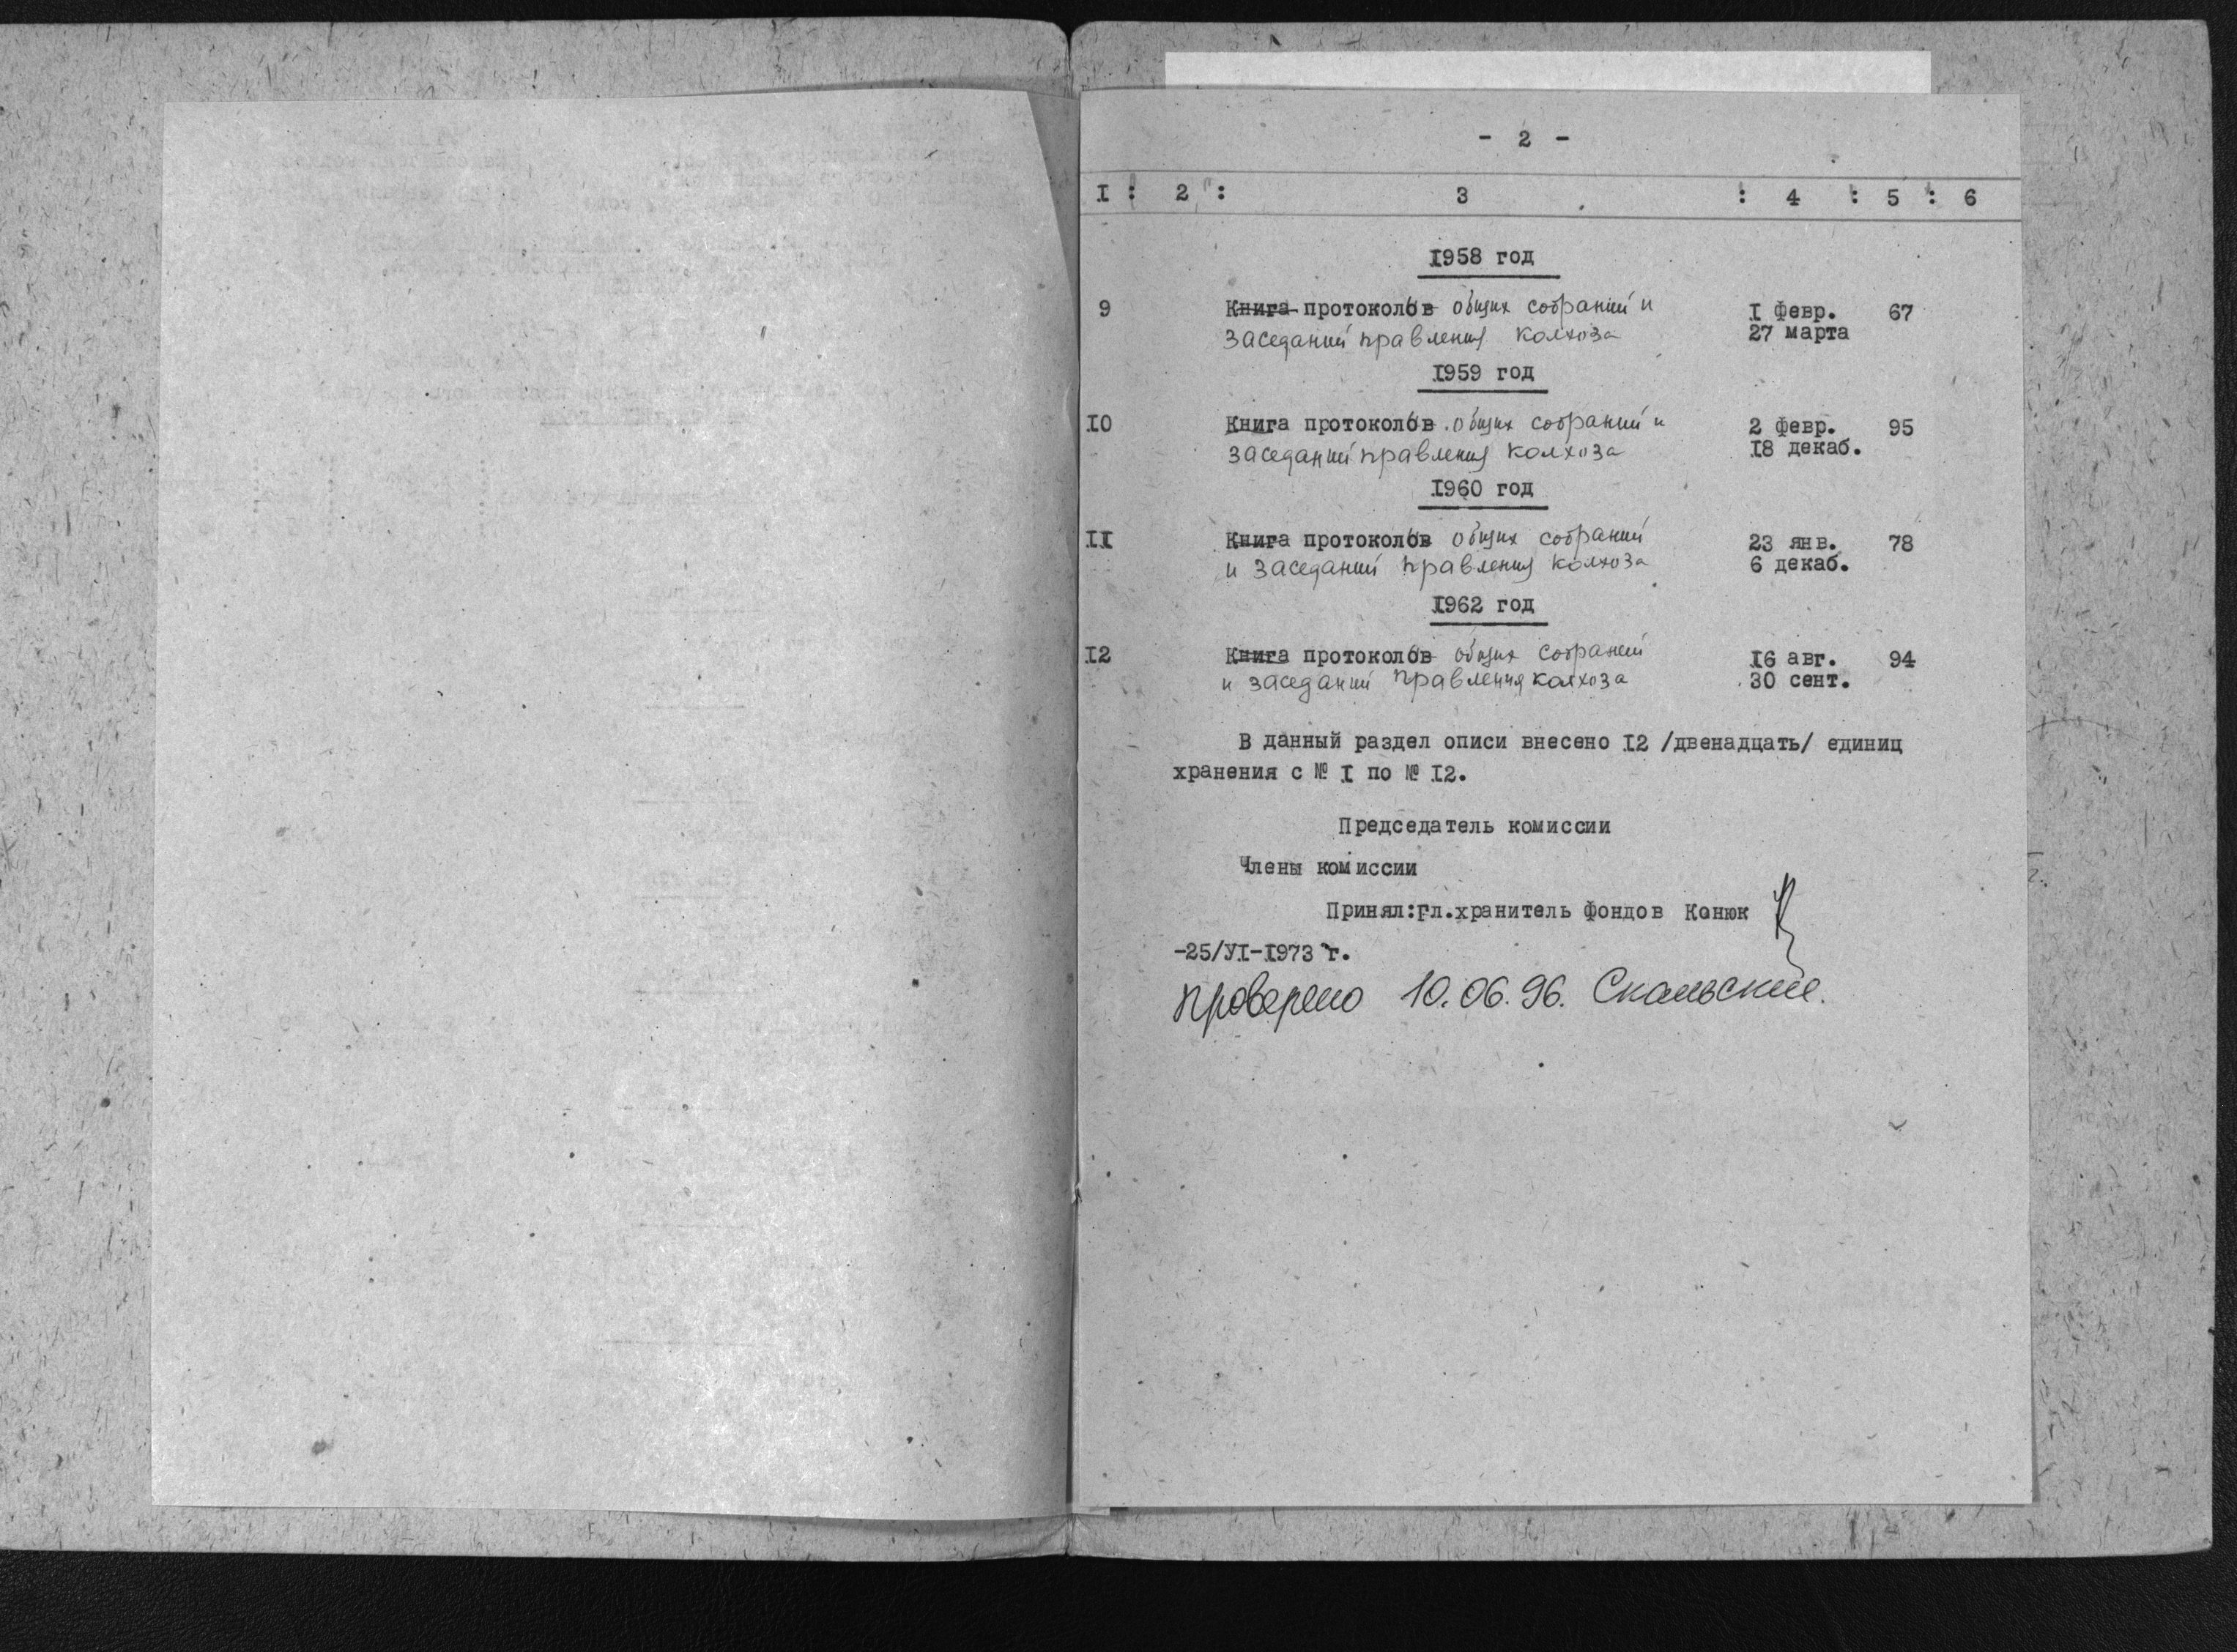 - 2 -
I : 2 : 3 : 4 : 5 : 6
1958 год
9 Книга протоколов общих собраний и I февр. 67
заседаний правления колхоза 27 марта
1959 год
IO Книга протоколов общих собраний и 2 февр. 95
заседаний правления колхоза I8 декаб.
1960 год
II Книга протоколов общих собраний 23 янв. 78
и заседаний правления колхоза 6 декаб.
1962 год
I2 Книга протоколов общих собраний I6 авг. 94
и заседаний правления колхоза 30 сент.
В данный раздел описи внесено I2 /двенадцать/ единиц
хранения с № I по № I2.
Председатель комиссии
Члены комиссии
Принял:гл.хранитель фондов Конюк
-25/УI-I973 г.
проверено 10.06.96. Скальский.